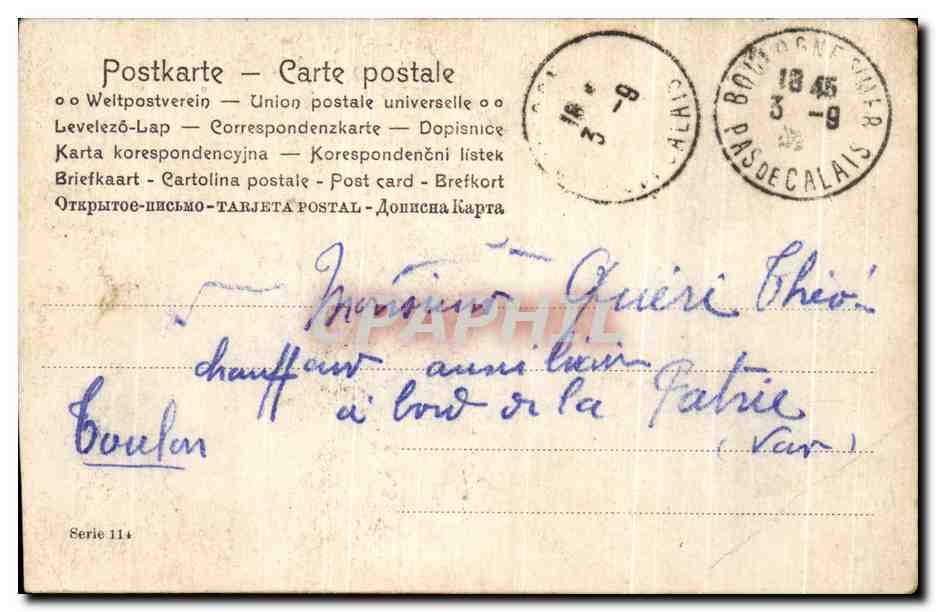 Postkarte — Carte postale
Weltpostverein — Union postale universelle
Levelező-Lap — Correspondenzkarte — Dopisnice
Karta korespondencyjna — Korespondenční lístek
Briefkaart - Cartolina postale - Post card - Brefkort
Открытое-письмо - TARJETA POSTAL - Дописна Карта
3 -9
BOULOGNE SUR MER
18 45
3 -9
PAS DE CALAIS
Monsieur Quéré Théo
CPAPHIL
chauffeur auxiliaire
à bord de la Patrie
Toulon
(Var)
Serie 114